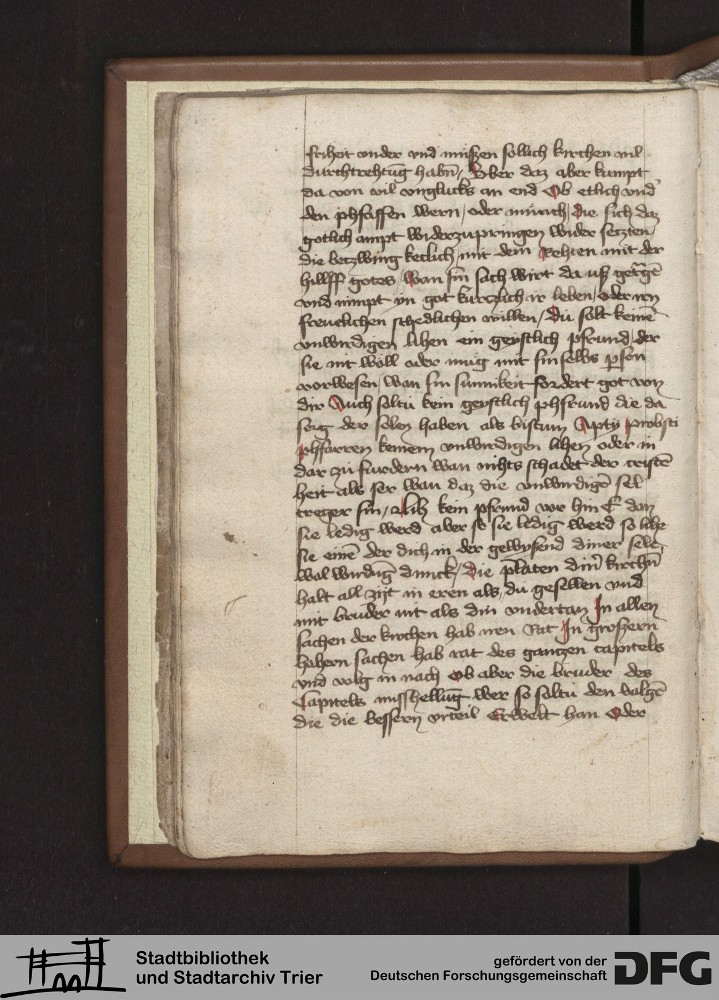 friheit onder vnd mußzen sollich kirchen vil
durchtrehtūg habn̄ / Uber daz aber kumpt
da von vil vnglucks an end Ob etlich vnd
den phfaffen wern / oder münch / die sich daz
gotlich ampt widerzupringen wider setzten /
die betzwing keclich / mit dem Rehten mit der
hillff gotes / wan sin sach wirt da uß
vnd nimpt yn got kurczlich ir leben / oder iren
freuelichen schedlichen willen / Du solt keinē
vnwirdigen lihen ein geystlich pfrund / der
sie nit wöll oder müg mit sin selbs
vorwesen / wan sin sumikeit fordert got von
dir Auch soltu kein geystlich phfrund die da
sorg der selen haben als bistum Aptij probsti
phfarren keinem vnwirdigen lihen oder in
dar zu furdern wan nihts schadet der cristē
heit als ser wan daz die vnwirdigē sel
treger sin / Lih kein pfrund vor hin E dan
sie ledig werd aber so sie ledig werd so lihe
sie einē der dich in der gewyssend diner sele
wol wirdig dunck / Die platen din̄ kirchn̄
halt all zijt in eren als / du gesellen vnd
mit bruder nit als din vndertan In allen
sachen der kirchen hab iren Rat In grossern
hohern sachen hab rat des gantzen capitels
vnd volg in nach Ob aber die bruder des
Capitels misshellūg wer so soltu den volgē
die die bessern vrteil Erwelt han Oder
Stadtbibliothek
und Stadtarchiv Trier
gefördert von der
Deutschen Forschungsgemeinschaft
DFG